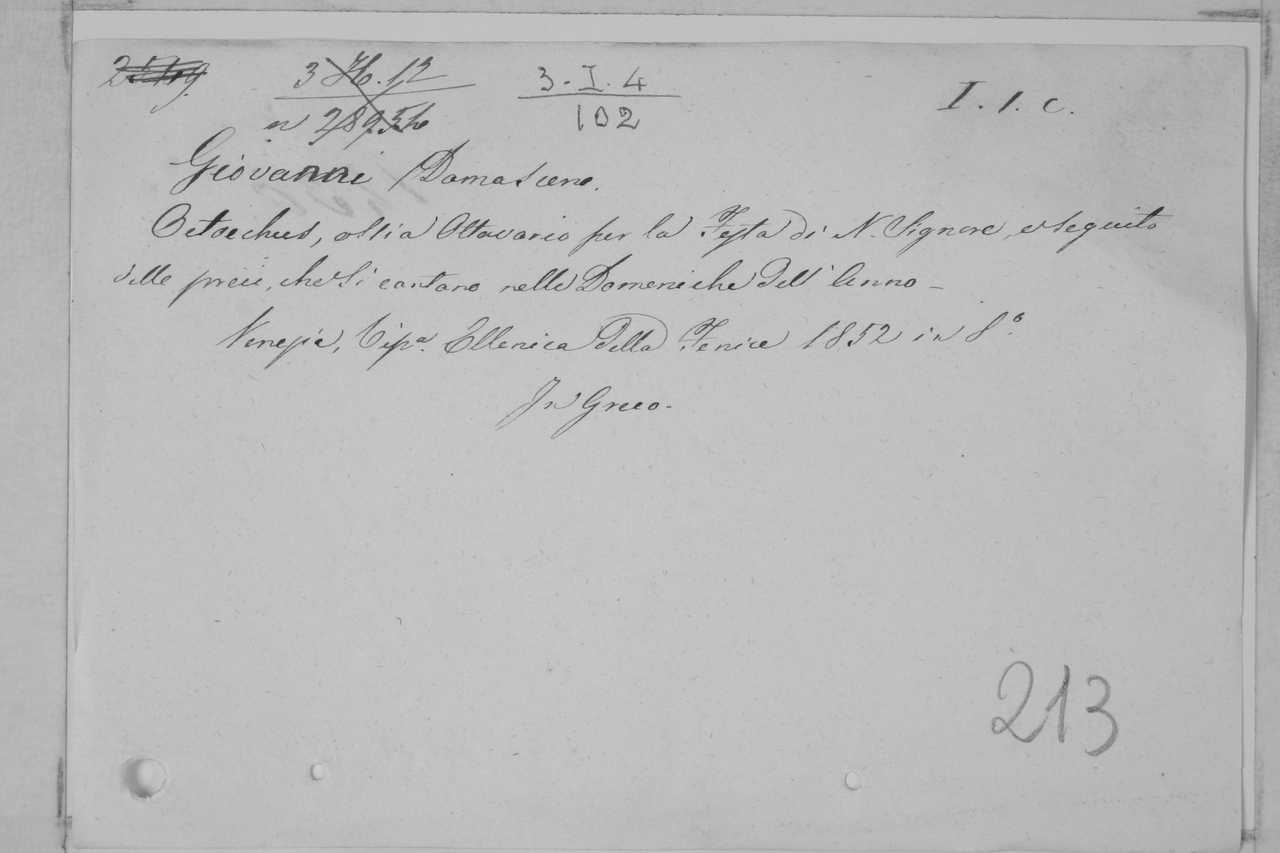 3 H. 12
n 28956
3. I. 4
102
I. 1. c.
Giovanni Damasceno.
Octoechus, ossia Ottavario per la Festa di N. Signore, e seguito
delle preci, che si cantano nelle Domeniche dell' Anno -
Venezia, Tipa. Ellenica della Fenice 1852 in 8o.
In Greco.
213